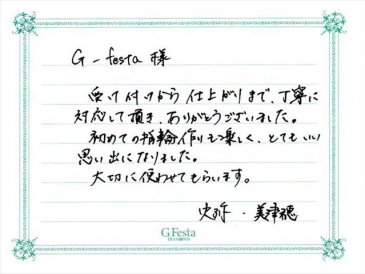 G-festa 様
受け付けから仕上がりまで、丁寧に
対応して頂き、ありがとうございました。
初めての指輪作りも楽しく、とてもいい
思い出になりました。
大切に使わせてもらいます。
・美津穂
G.Festa
DIAMOND